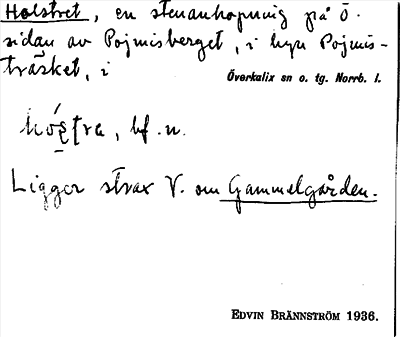 Holstret, en stenanhopning på Ö.
sidan av Pojmisberget, i byn Pojmis-
träsket, i Överkalix sn o. tg. Norrb. l.
bf. n.
Ligger strax V. om Gammelgården.
EDVIN BRÄNNSTRÖM 1936.